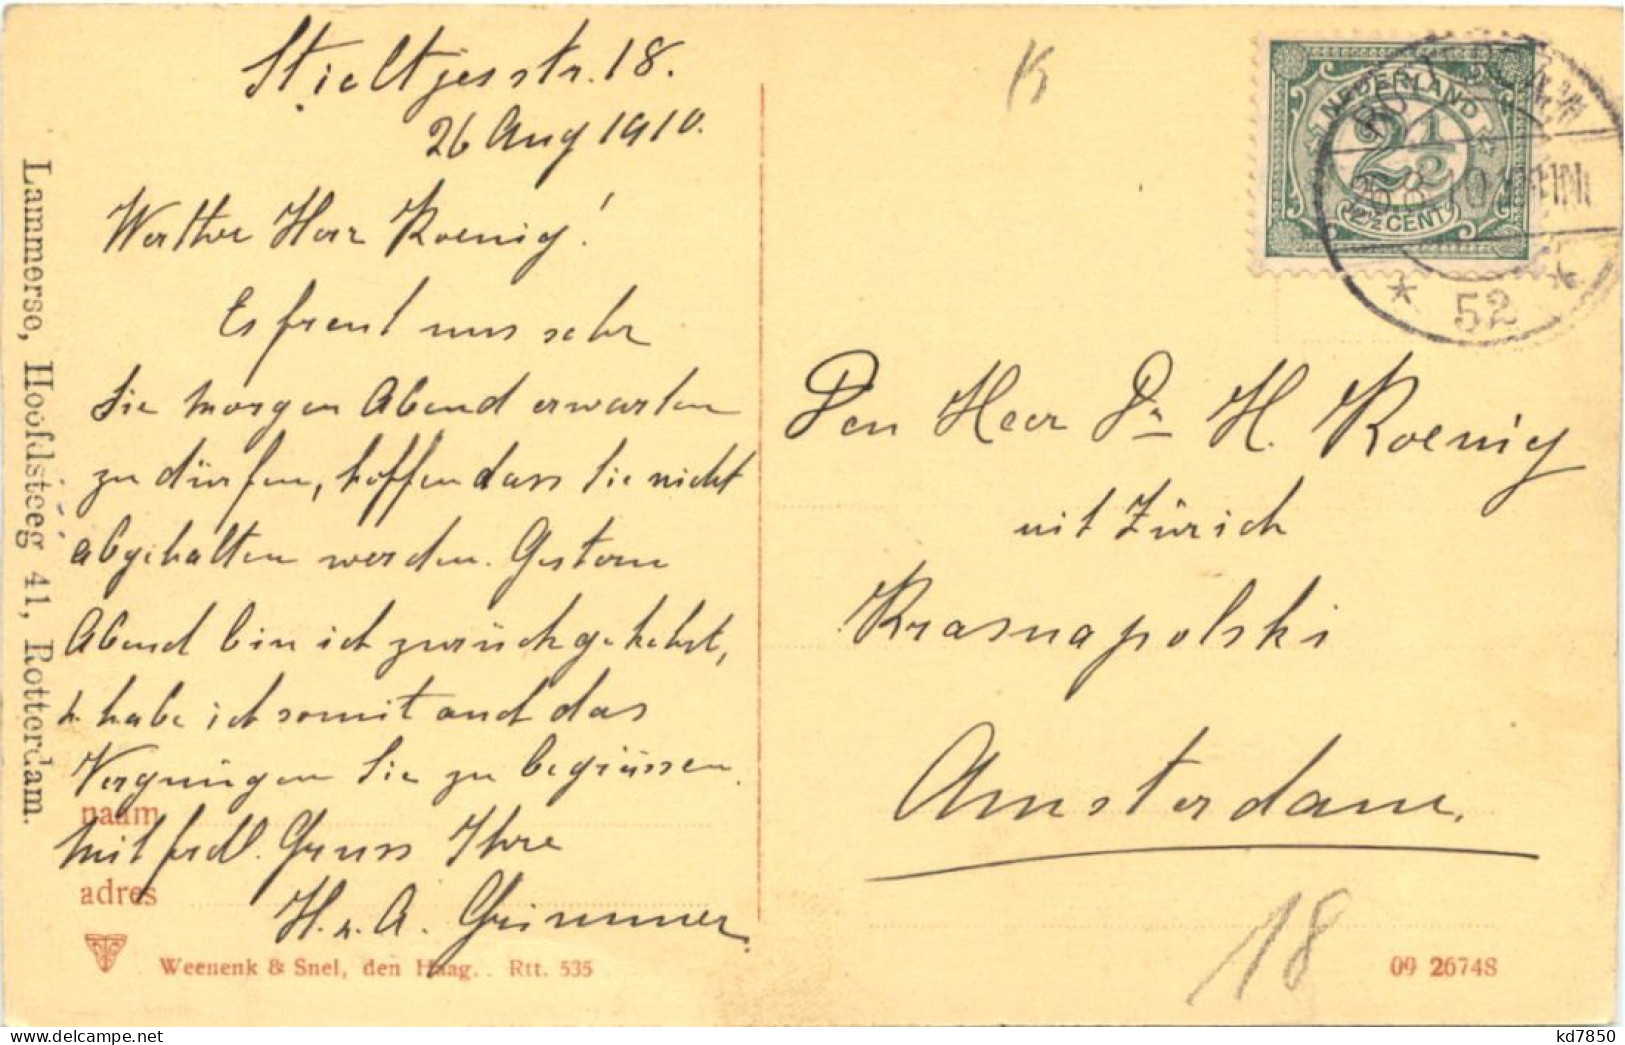 Stieltjesstr. 18.
26 Aug 1910.
Werther Herr Koenig!
Es freut uns sehr
Sie morgen Abend erwarten
zu dürfen, hoffen dass Sie nicht
abgehalten werden. Gestern
Abend bin ich zurückgekehrt,
habe ich somit auch das
Vergnügen Sie zu begrüssen.
Mit frdl. Gruss Ihre
H. u. A. Grimmer.
naam
adres
Weenenk & Snel, den Haag. Rtt. 535
Lammerse, Hoofdsteeg 41, Rotterdam.
NEDERLAND
2½
2½ CENT
52
Den Heer Dr H. Koenig
uit Zürich
Krasnapolski
Amsterdam.
18
09 26748
kd7850